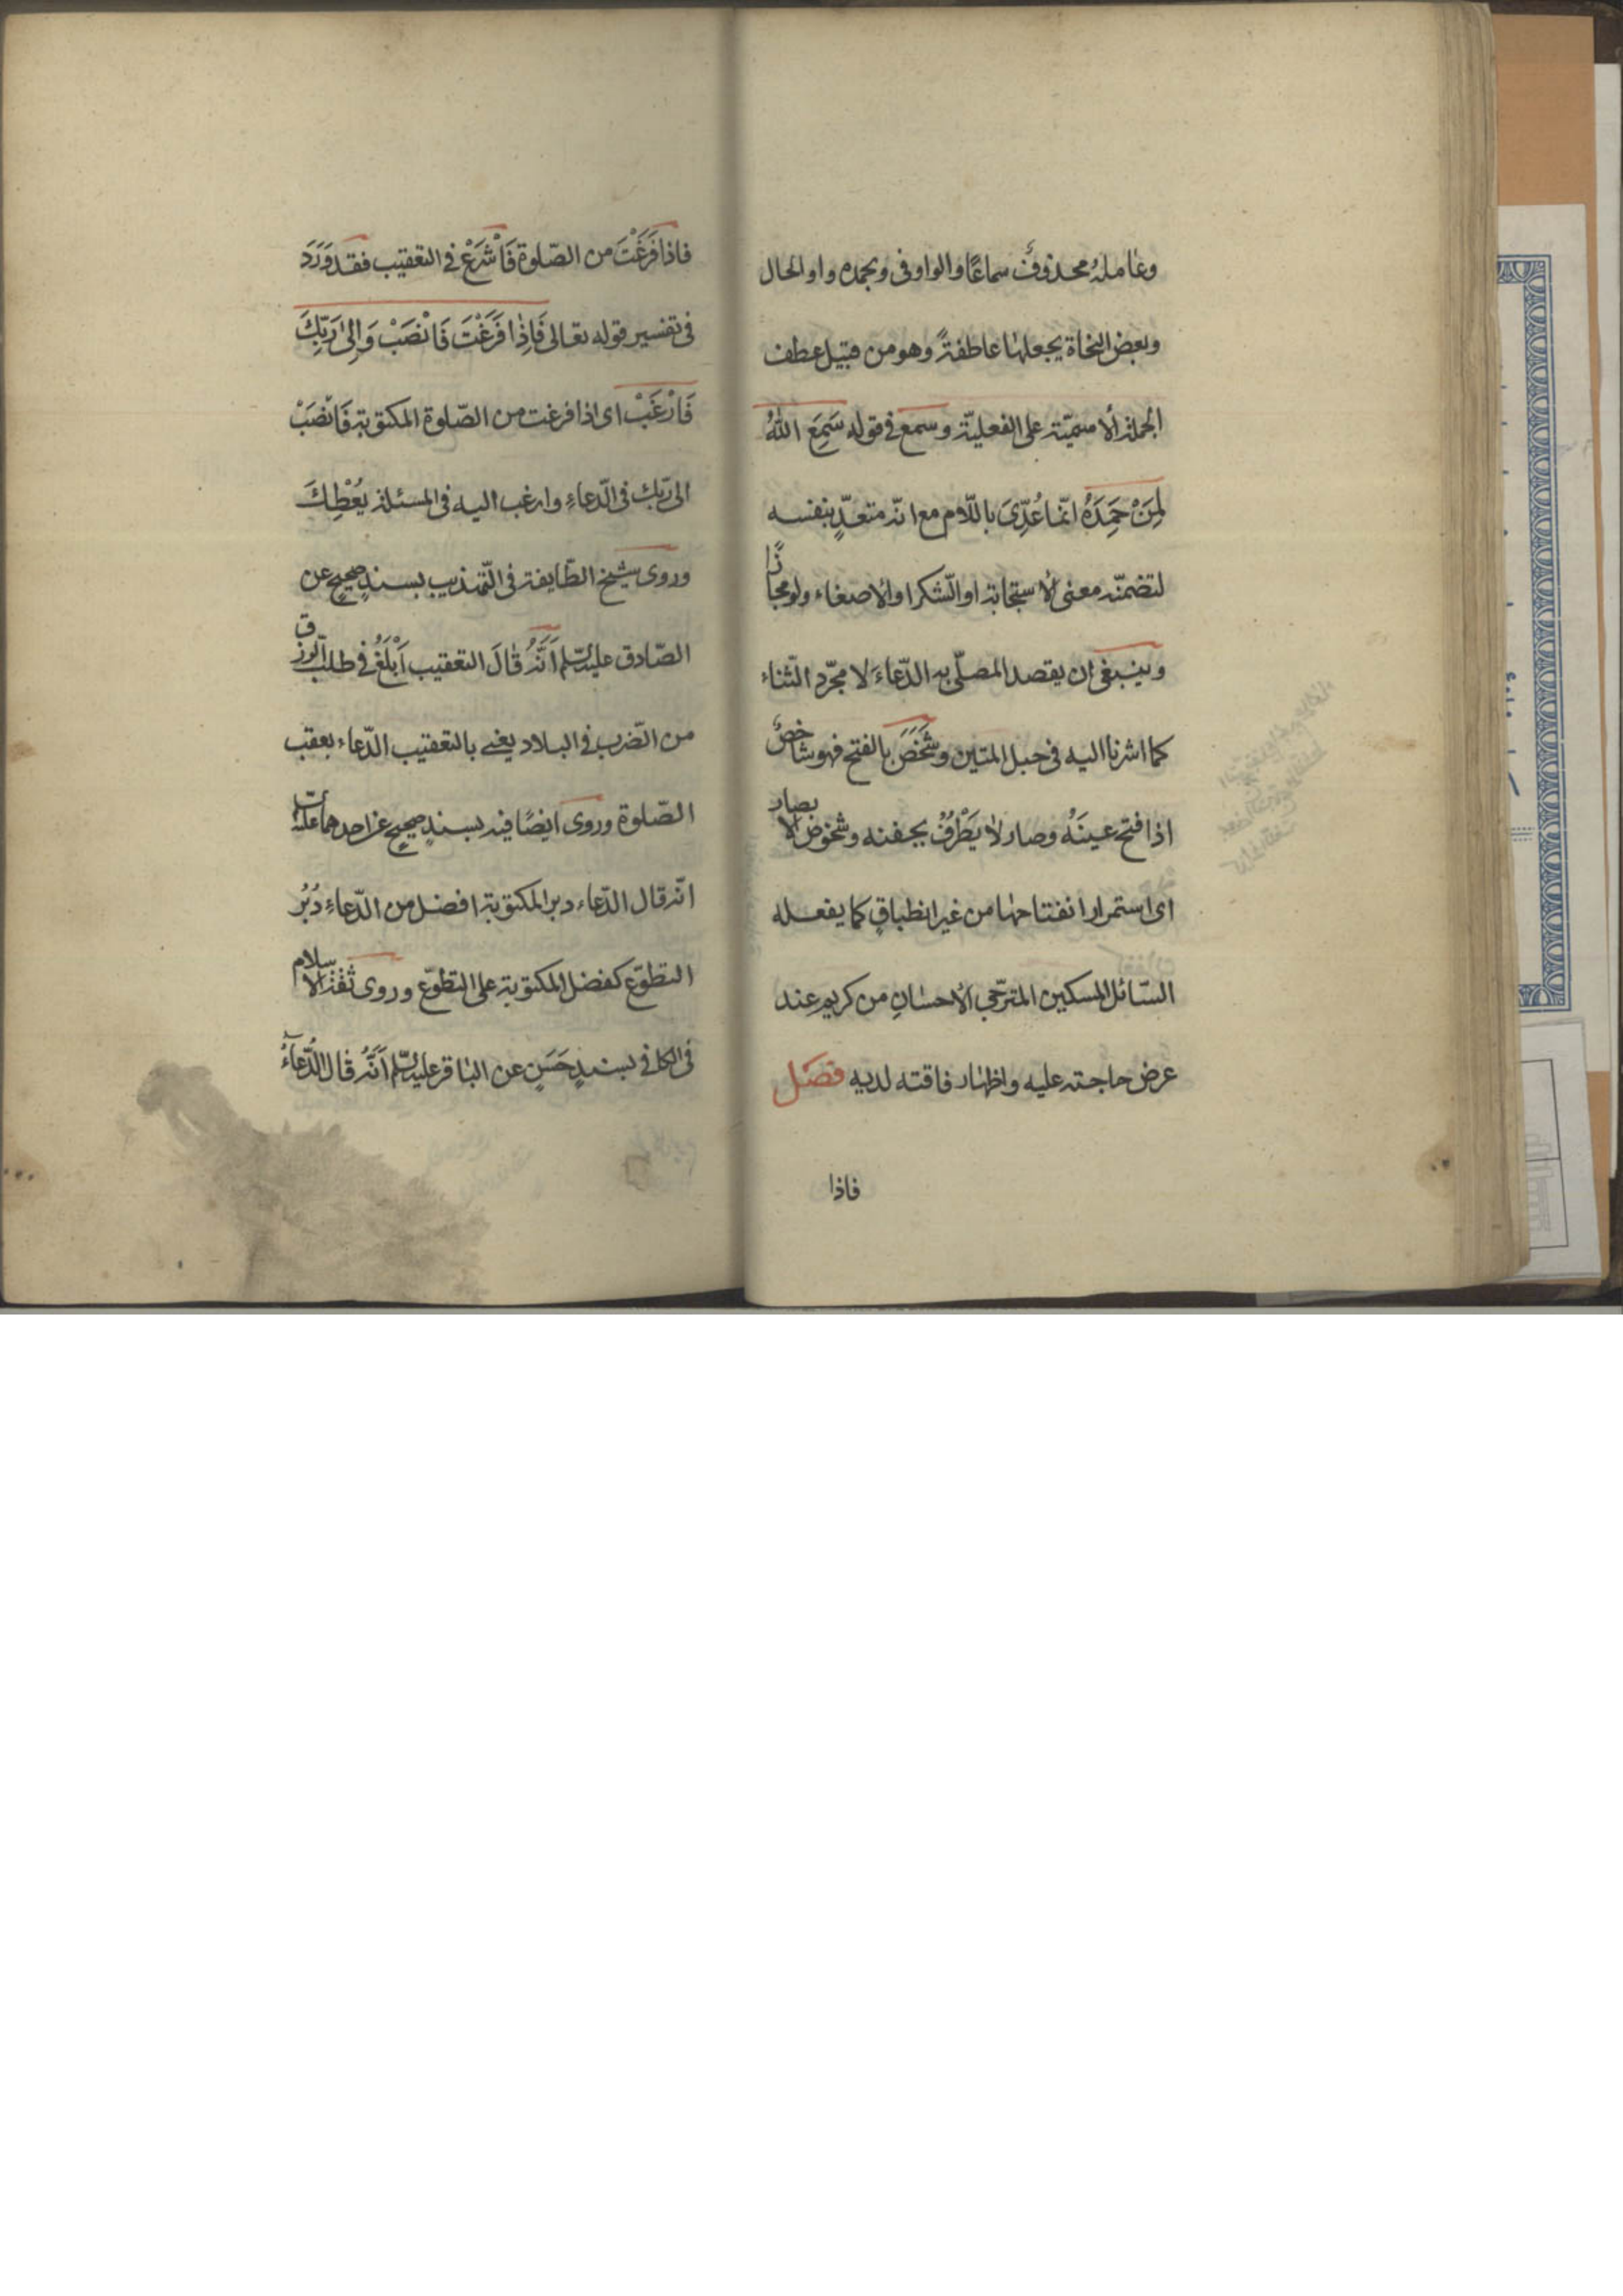 وعامله محذوفٌ سماعًا والواو فى وبحمده واو الحال
وبعض النحاة يجعلها عاطفةً وهو من قبيل عطف
الجملة الاسميّة على الفعليّة وسمع فى قوله سَمِعَ اللهُ
لِمَنْ حَمِدَهُ انّما عُدِّىَ باللّام مع انّه متعدٍّ بنفسه
لتضمنّه معنى الاستجابة او الشّكر او الاصغاء ولو مجازًا
وينبغى ان يقصد المصلّى به الدّعاءَ لا مجرّد الثّناء
كما اشرنا اليه فى حبل المتين وشَخَصَ بالفتح فهو شاخصٌ
اذا فتح عينَهُ وصار لا يَطْرُفُ بجفنه وشخوض الابصار
اى استمرار انفتاحها من غير انطباقٍ كما يفعله
السّائل المسكين المترجّى الاحسانِ من كريم عِند
عرض حاجته عليه واظهار فاقته لديه فصَل
فاذا
فاذا فَرَغْتَ من الصّلوة فَاشْرَعْ فى التعقيب فقد وَرَدَ
فى تفسير قوله تعالى فَاِذٰا فَرَغْتَ فَانْصَبْ وَاِلىٰ رَبِّكَ
فَارْغَبْ اى اذا فرغت من الصّلوة المكتوبة فَانْصَبْ
الى ربّك فى الدّعاءِ وارغب اليه فى المسئلة يُعْطِكَ
وروى شيخ الطّايفة فى التّهذيب بسندٍ صحيحٍ عن
الصّادق عليه السّلم اَنَّهُ قٰالَ التعقيب اَبْلَغُ فى طلب الرّزق
من الضّرب فى البلاد يعنى بالتعقيب الدّعاء بعقب
الصّلوة وروى ايضًا فيه بسندٍ صحيحٍ عن احدهما عليهما السّلم
انّه قال الدّعاء دبر المكتوبة افضل من الدّعاءِ دُبُرُ
التطوّع كفضل المكتوبة على التطوّع وروى ثقة الاسلام
فى الكافى بسندٍ حَسَنٍ عن الباقر عليه السّلم اَنَّهُ قٰال الدُّعٰآءُ